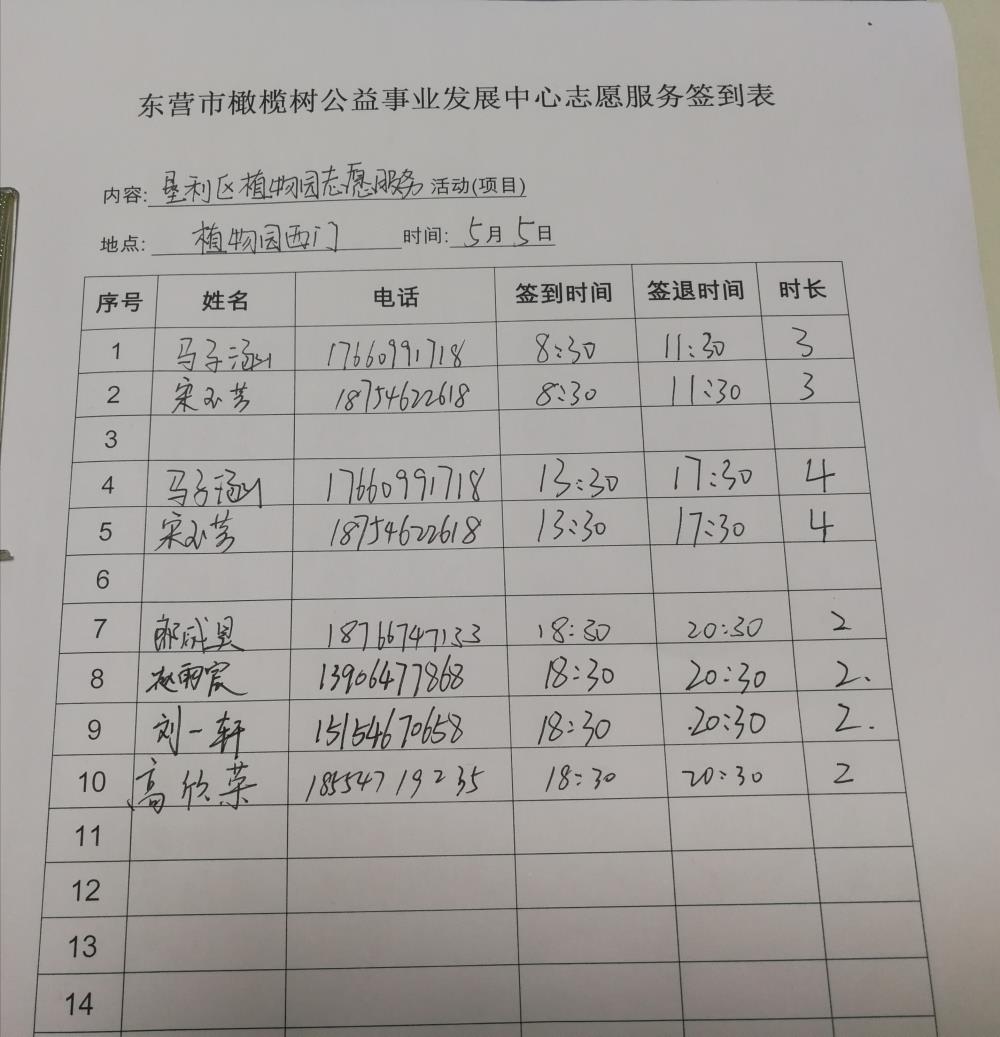 东营市橄榄树公益事业发展中心志愿服务签到表
内容: 垦利区植物园志愿服务 活动(项目)
地点: 植物园西门 时间: 5月5日
序号 姓名 电话 签到时间 签退时间 时长
1 马子涵 17660991718 8:30 11:30 3
2 宋玉芳 18754622618 8:30 11:30 3
3
4 马子涵 17660991718 13:30 17:30 4
5 宋玉芳 18754622618 13:30 17:30 4
6
7 18766747133 18:30 20:30 2
8 赵雨宸 13906477868 18:30 20:30 2.
9 刘一轩 15154670658 18:30 20:30 2.
10 高欣荣 18554719235 18:30 20:30 2
11
12
13
14